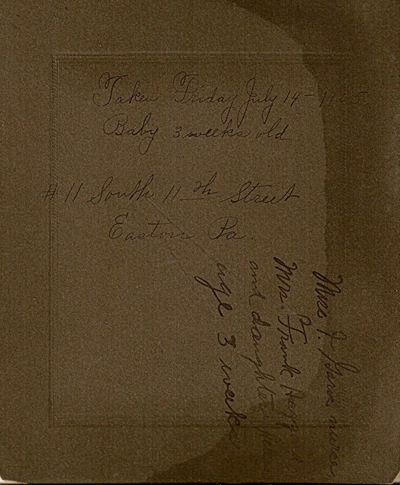 Taken Friday July 14 - 11
Baby 3 weeks old
# 11 South 11th Street
Easton Pa.
Miss J.
Mrs. Frank
and daughter
age 3 weeks